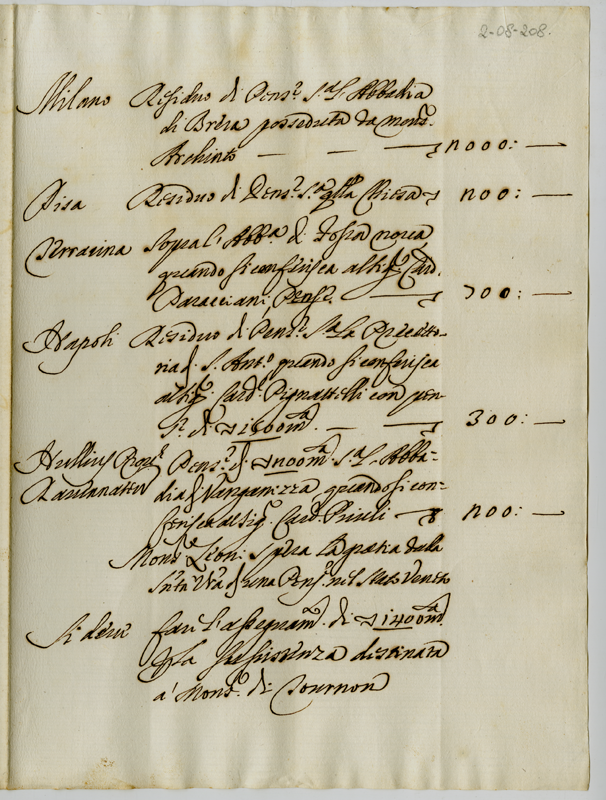 2-08-208.
Milano Residuo di Pens.e S.a L'Abbadia
di Brera posseduta da Mons.r
Archinto — — — n000: —
Pisa Residuo di Pens.e S.a qlla Chiesa n00: —
Terracina Sopra l'Abb.a di Fossa nova
quando si conferisca al Sig.r Card.
Paracciani, Pens.e — 700: —
Napoli Residuo di Pens.e S.a La Precetto-
ria di S. Ant.o quando si conferisca
al Sig.r Card. Pignattelli con pen-
s.e di 1600 m.ta — — 300: —
Nullius Pens.e di n00 m.ta S.a L'Abba-
dia di Vangadizza quando si con-
ferisca al Sig.r Card. Priuli — n00: —
Mons.r Leoni Spera La gratia dalla
S.ntà V.ra di una Pens.e nel Stato Veneto
Si deve fare l'assegnam.to di 1400 m.ta
p La sussistenza destinata
a' Mons.r di Tournon